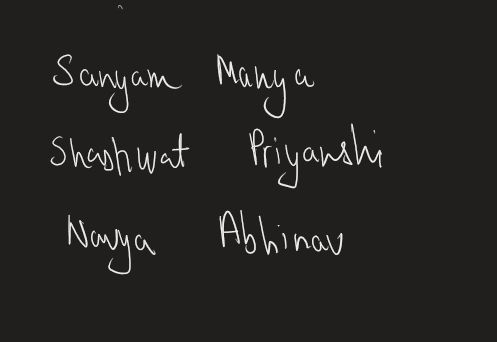 Sanyam Manya
Shashwat Priyanshi
Navya Abhinav